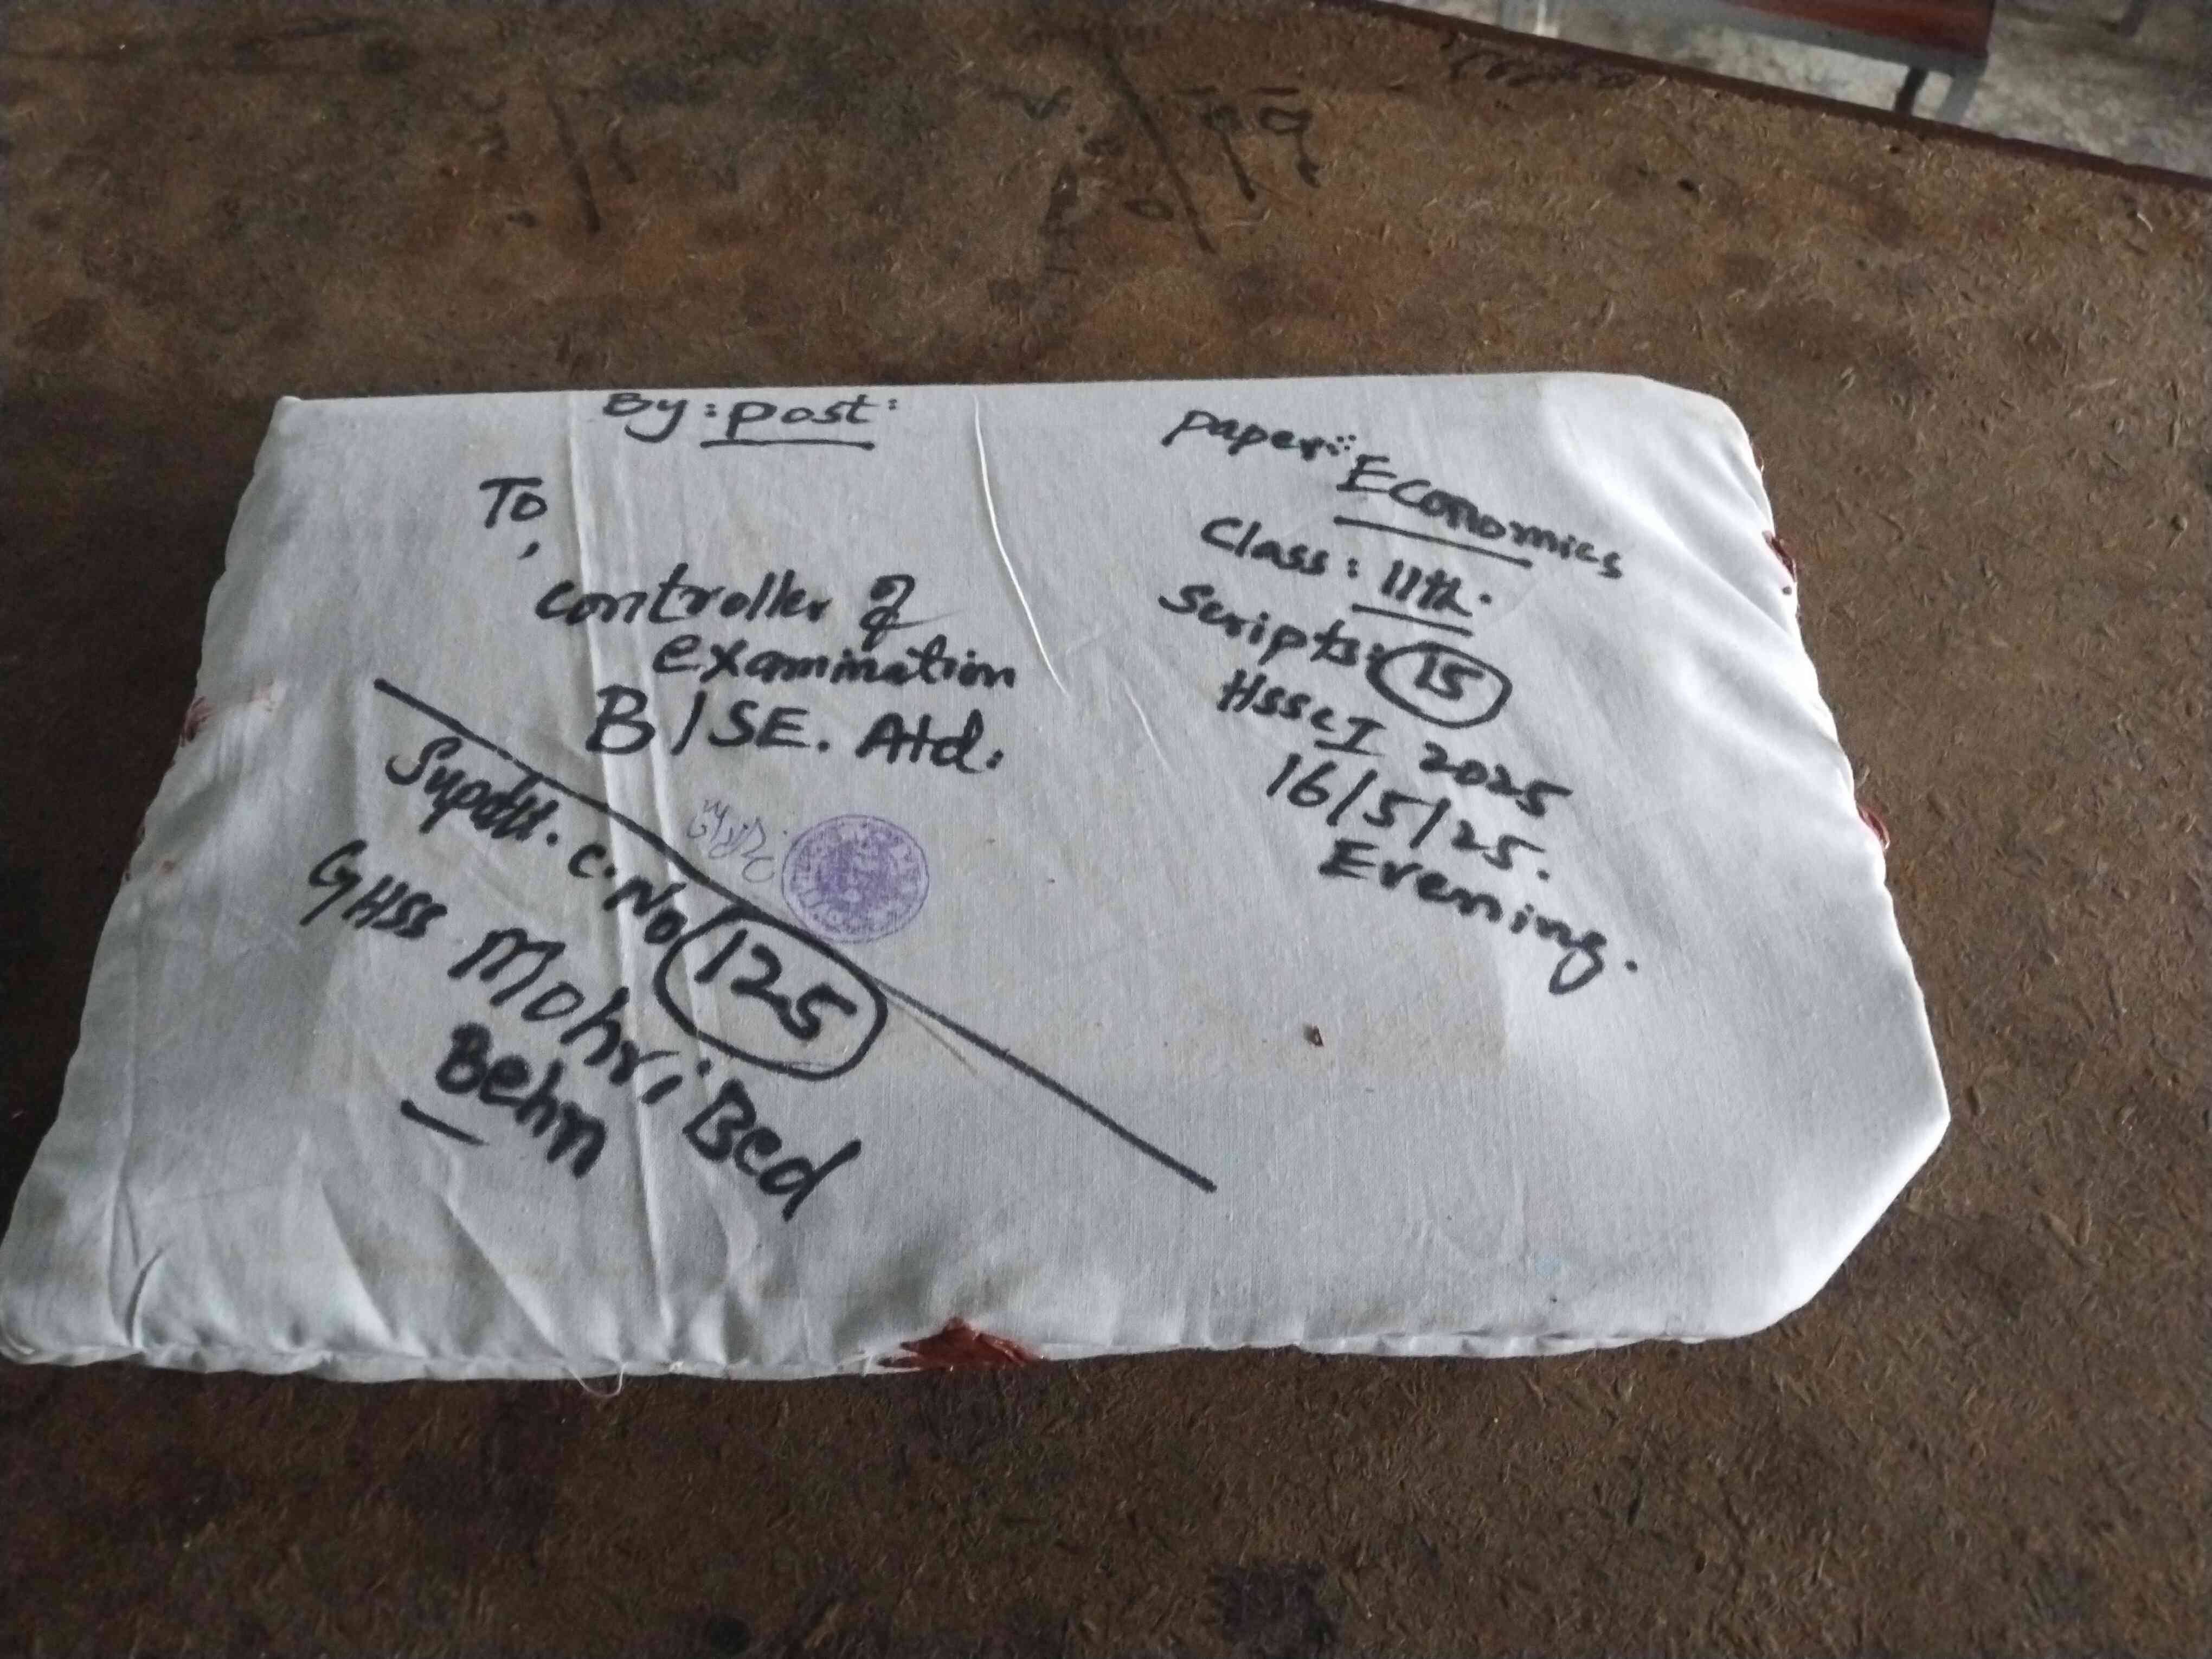 By: post:
To,
controller of
examination
B/SE. Atd.
Supdtt. c. No 125
GHSS Mohri Bed
Behn
paper:
Economics
Class: 11th.
Scripts: 15
HSSC I 2025
16/5/25.
Evening.